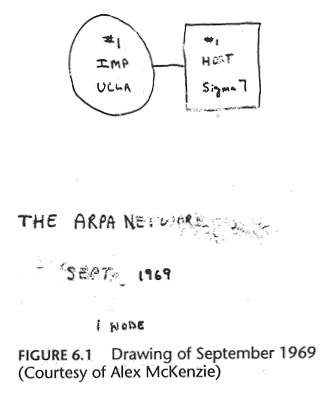 #1
IMP
UCLA
#1
HOST
Sigma 7
THE ARPA NETWORK
SEPT. 1969
1 NODE
FIGURE 6.1 Drawing of September 1969
(Courtesy of Alex McKenzie)